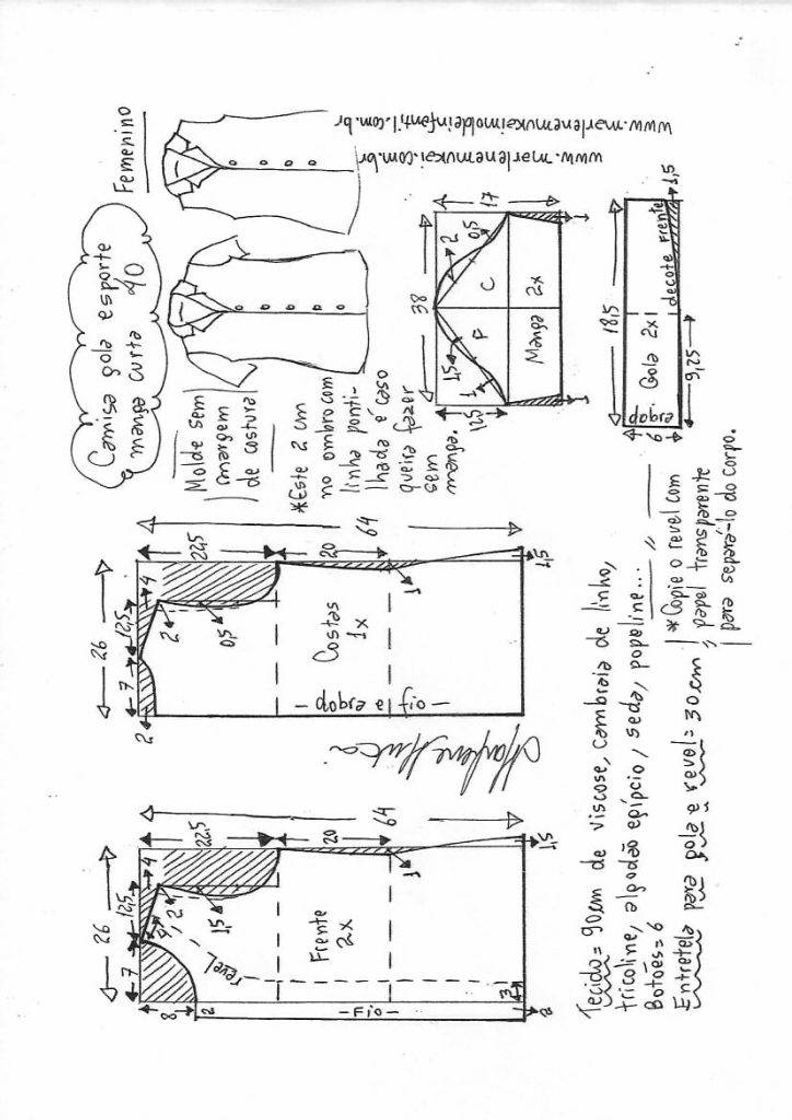 Camisa gola esporte
manga curta 40
Femenino
Molde sem
margem
de costura
*Este 2 cm
no ombro com
linha ponti-
lhada é caso
queira fazer
sem
manga.
www.marlenemukaimoldeinfantil.com.br
www.marlenemukai.com.br
26
7
12,5
4
2
2
0,5
22,5
20
64
1
1,5
Costas
1x
- fio - a dobra -
Marlene Mukai
26
7
12,5
4
4
2
1,5
22,5
20
64
1
1,5
8
2
revel
Frente
2x
-Fio-
3
2
38
17
12,5
2
0,5
1,5
1
F
C
Manga 2x
1
1
18,5
Gola 2x
dobra
decote frente
6
9,25
1,5
Tecido= 90cm de viscose, cambraia de linho,
tricoline, algodão egípcio, seda, popeline...
Botões=6
Entretela para gola e revel=30cm
*Copie o revel com
papel transparente
para separá-lo do corpo.